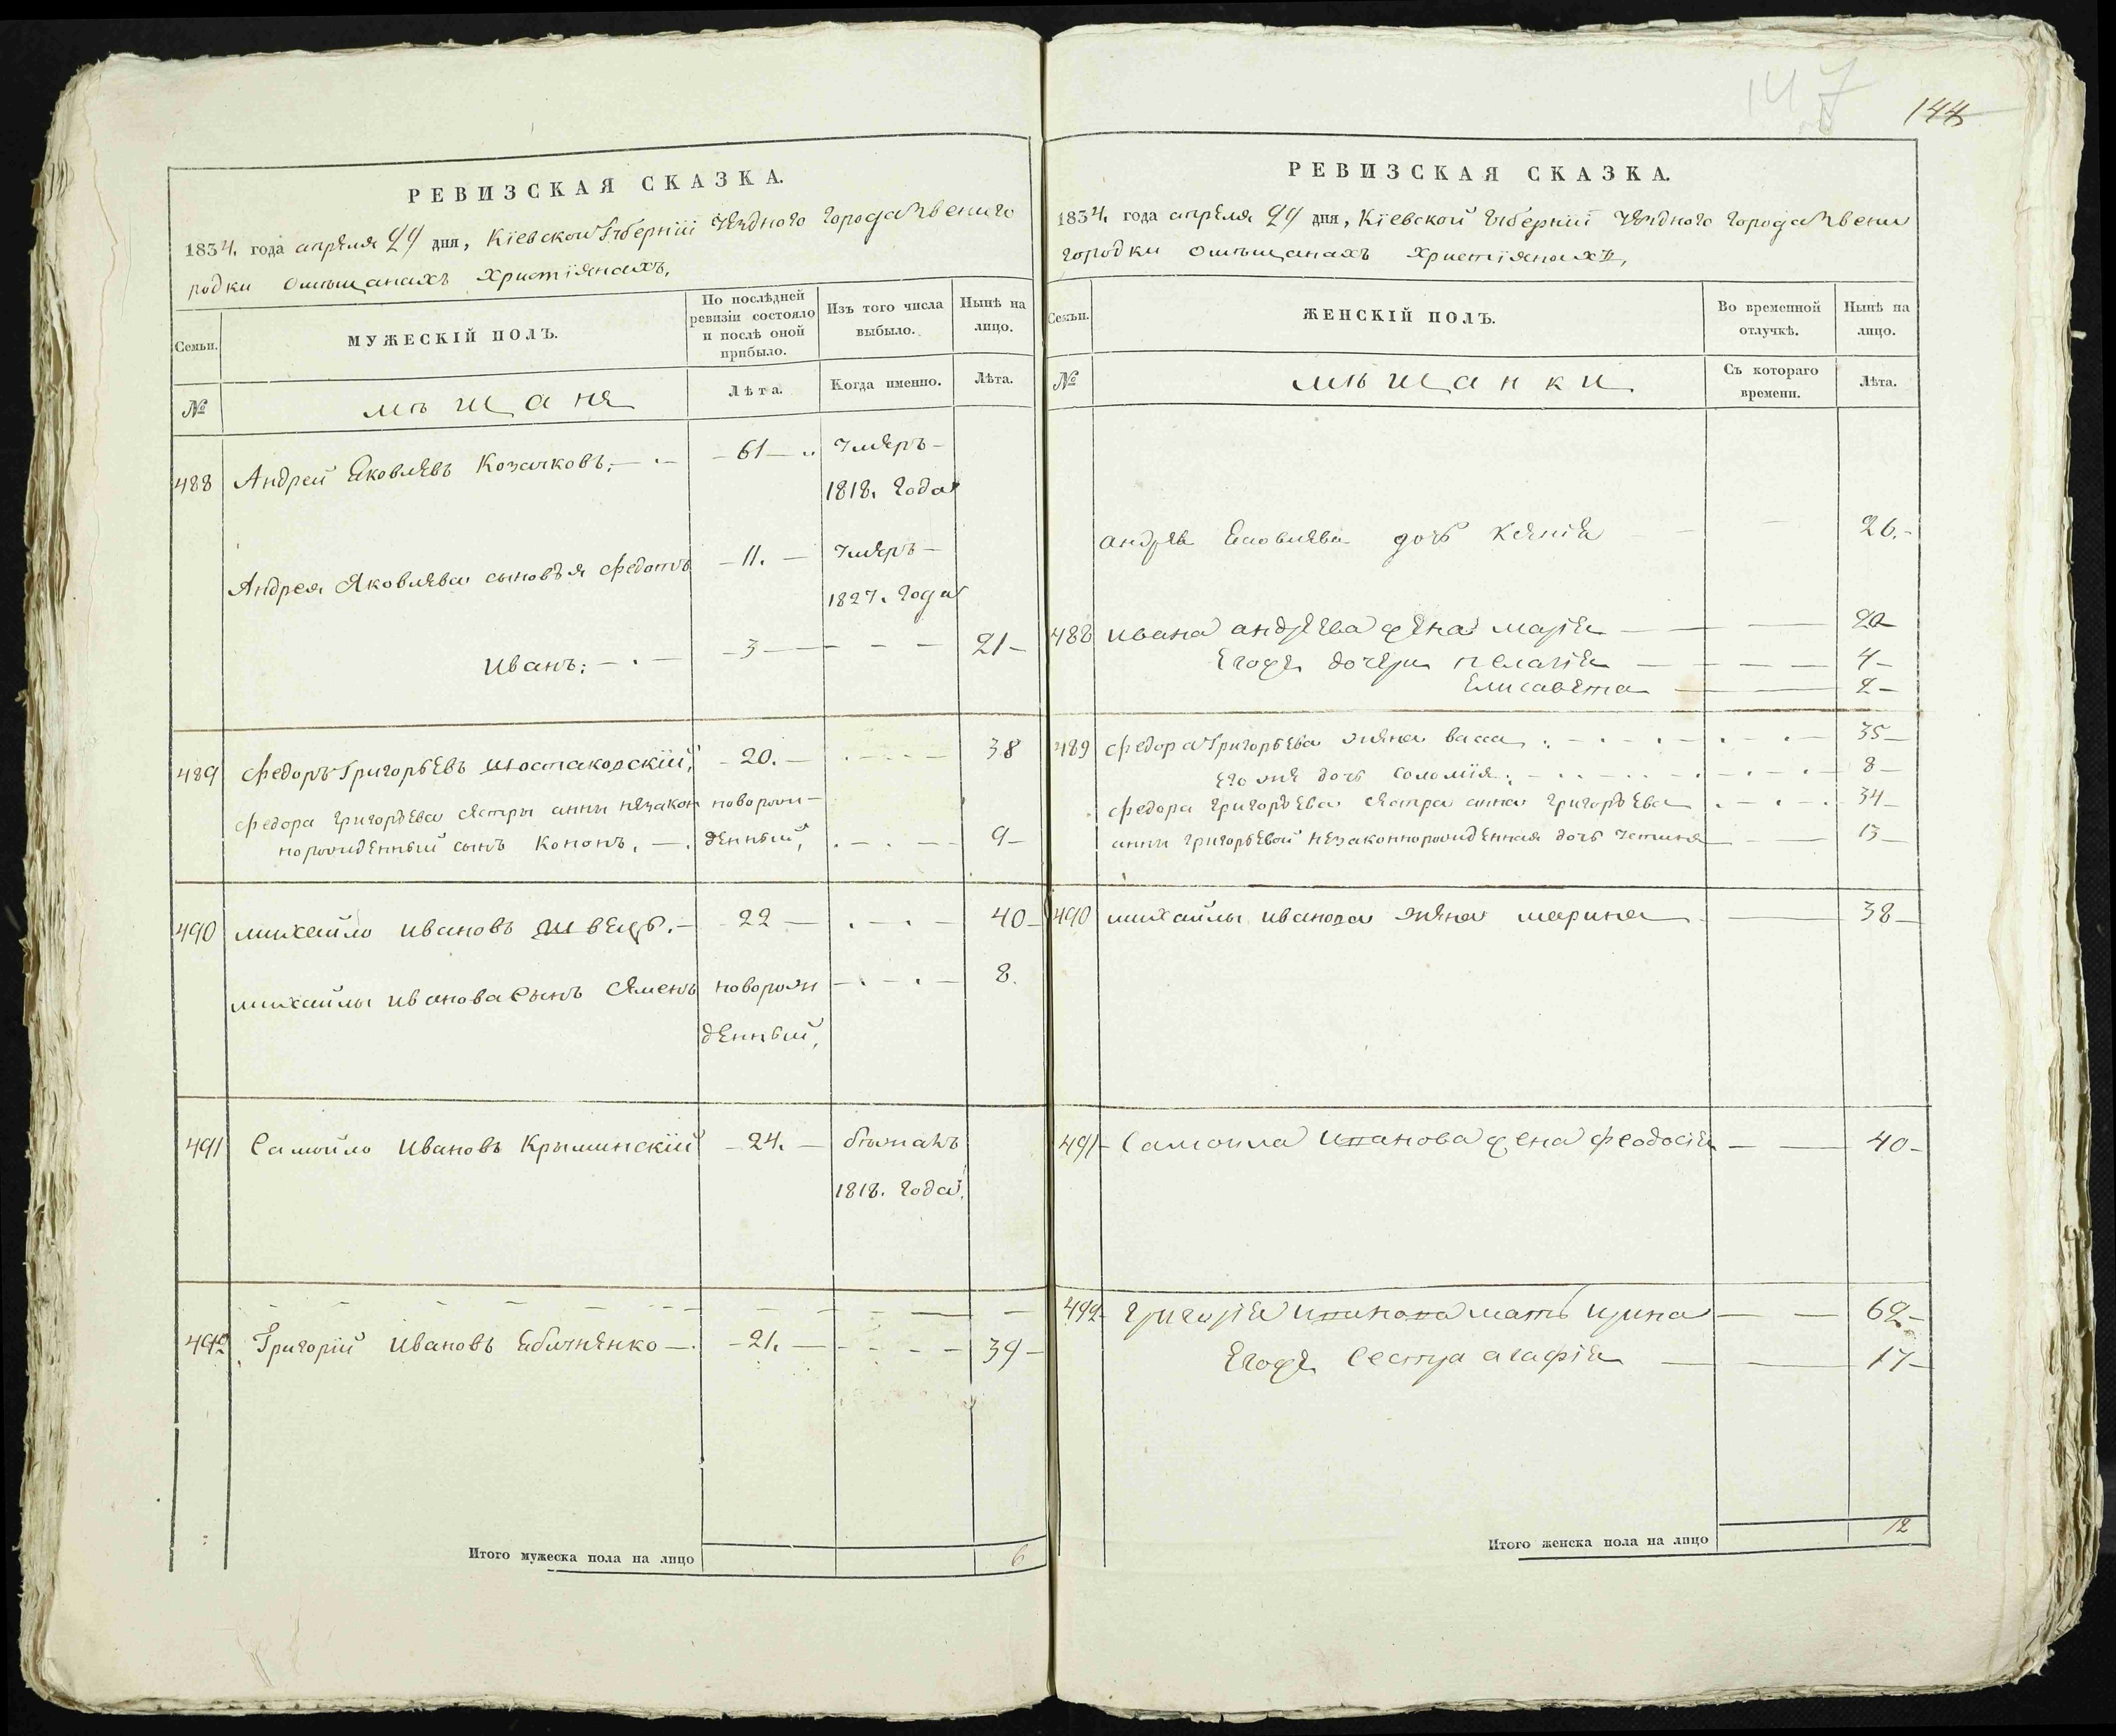 147
144
РЕВИЗСКАЯ СКАЗКА.
1834. года апреля 29 дня, Кіевской Губерніи Уезднаго Города Звениго
родки о мѣщанахъ христіянахъ,
Семьи.
МУЖЕСКІЙ ПОЛЪ.
По послѣдней ревизіи состояло и послѣ оной прибыло.
Изъ того числа выбыло.
Нынѣ на лицо.
№
мѣщане
Лѣта.
Когда именно.
Лѣта.
488 Андрей Яковлевъ Козачковъ. — 61 — умеръ —
1818. года
Андрея Яковлева сыновья Федотъ — 11. — умеръ —
1827. года
Иванъ. — 3 — 21 —
489 Федоръ Григорьевъ Шостаковскій, — 20. — 38
Федора Григорьева сестры анны незакон новорож —
норожденный сынъ Кононъ. — денный, 9 —
490 михайло ивановъ швецъ. — 22 — 40 —
михайлы иванова сынъ Семенъ новорож — 8.
денный,
491 Самойло Ивановъ Крыминскій — 24. —
1818. года.
492 Григорій Ивановъ — 21. — 39 —
Итого мужеска пола на лицо 6
РЕВИЗСКАЯ СКАЗКА.
1834. года апреля 29 дня, Кіевской Губерніи Уезднаго Города Звени
городки о мѣщанахъ христіянахъ,
Семьи.
ЖЕНСКІЙ ПОЛЪ.
Во временной отлучкѣ.
Нынѣ на лицо.
№
мѣщанки
Съ котораго времени.
Лѣта.
андрея Яковлева дочь Ксенія — 26. —
488 ивана андреева жена марія — 20 —
Егоже дочери пелагія — 4 —
Елисавета — 2 —
489 федора Григорьева жена васса — 35 —
его же дочь соломія. — 8 —
федора григорьева сестра анна григорьева — 34 —
анны григорьевой незаконнорожденная дочь устиня — 13 —
490 михайлы иванова жена марина — 38 —
491 — Самоила иванова жена феодосія — 40 —
492 — григорія иванова мать ирина — 62 —
Егоже сестра агафія — 17 —
Итого женска пола на лицо 12